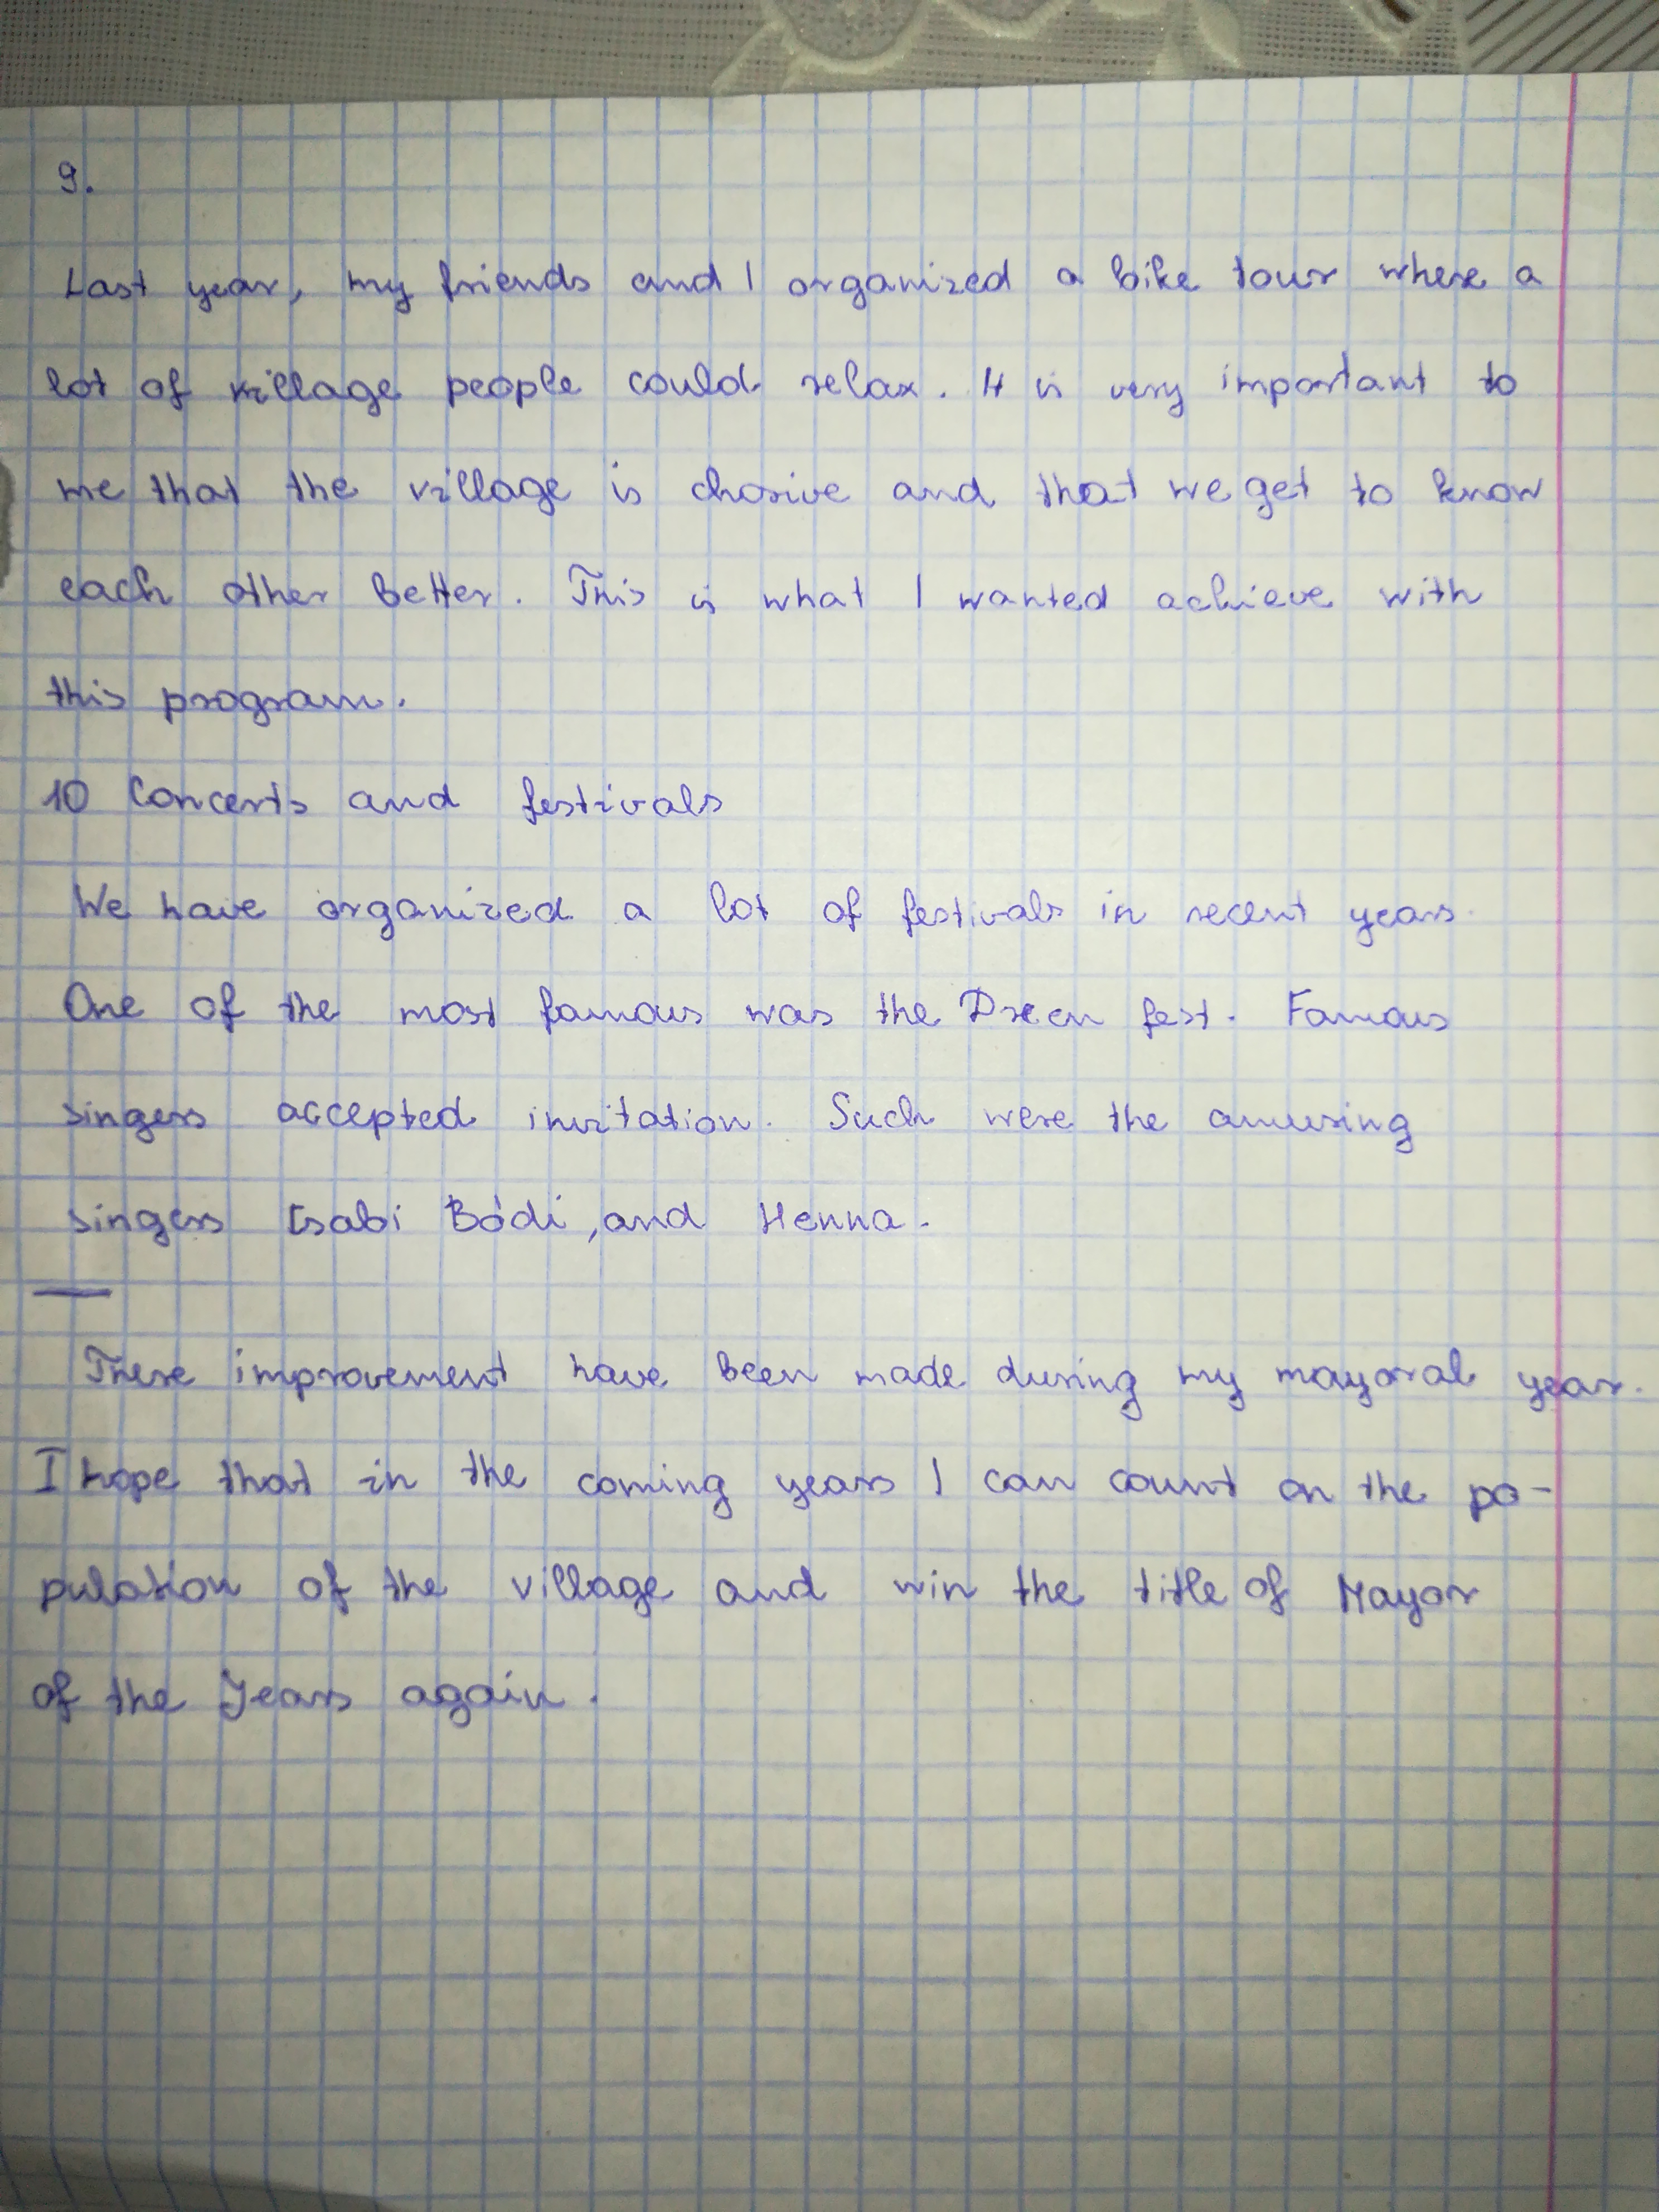 9.
Last year, my friends and I organized a bike tour where a
lot of village people could relax. It is very important to
me that the village is chosive and that we get to know
each other better. This is what I wanted achieve with
this program.
10 Concerts and festivals
We have organized a lot of festivals in recent years.
One of the most famous was the Dreen fest. Famous
singers accepted invitation. Such were the amusing
singers Csabi Bódi, and Henna.
These improvement have been made during my mayoral year.
I hope that in the coming years I can count on the po-
pulation of the village and win the title of Mayor
of the Years again.